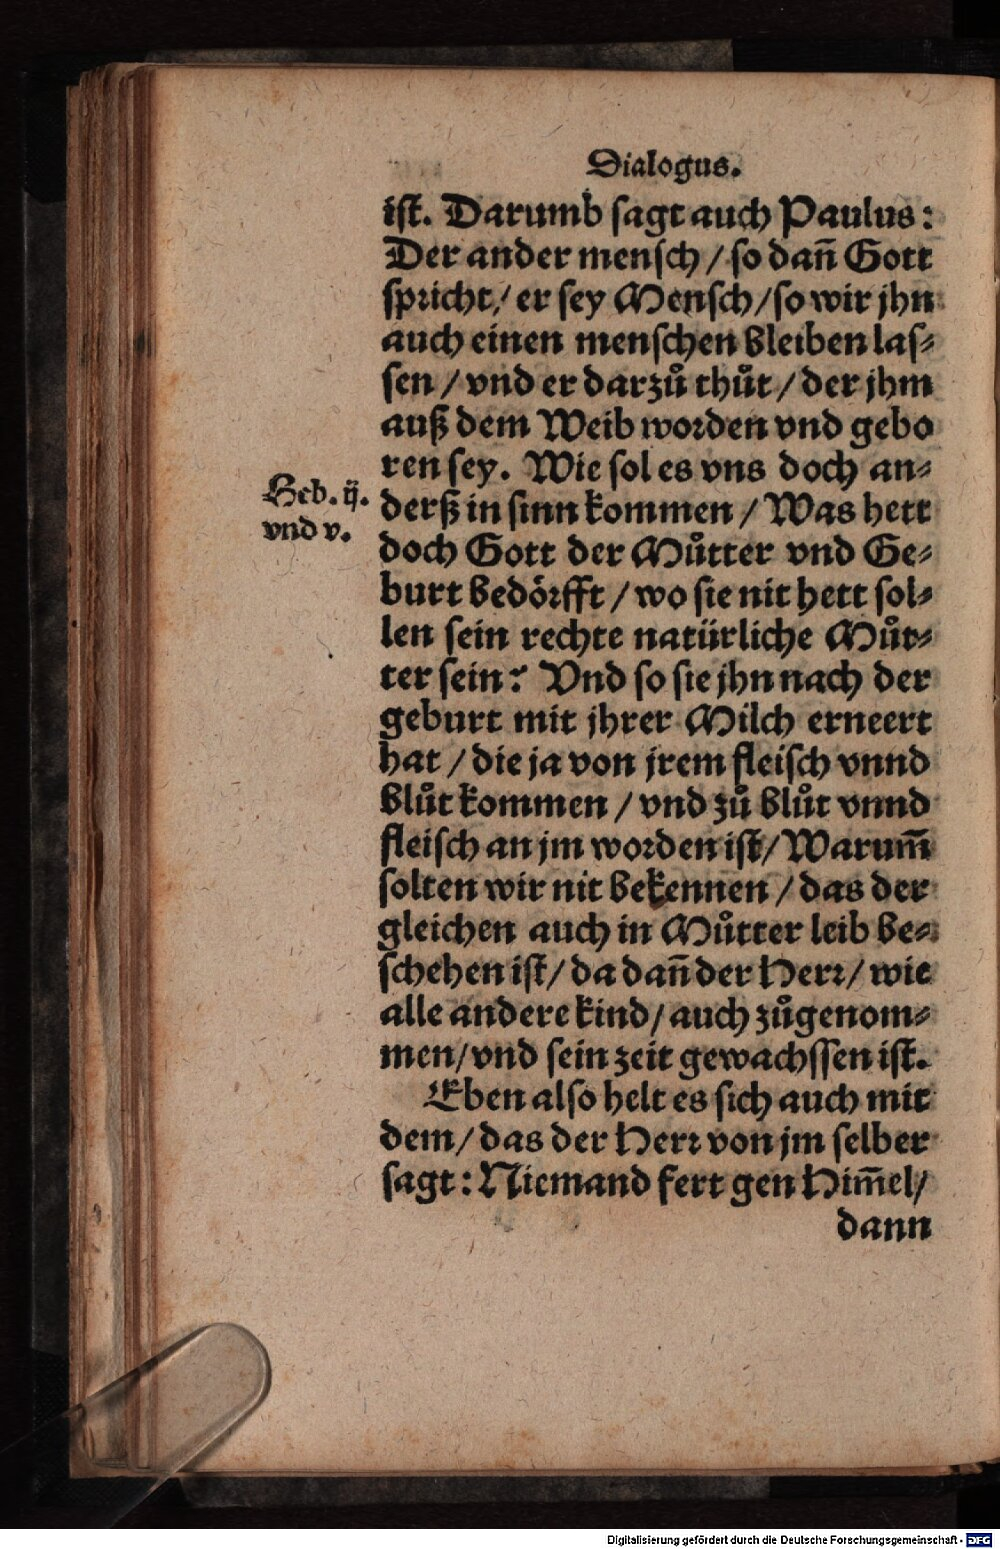 Dialogus.
ist. Darumb sagt auch Paulus:
Der ander mensch / so dañ Gott
spricht / er sey Mensch / so wir jhn
auch einen menschen bleiben las⸗
sen / vnd er darzů thůt / der jhm
auß dem Weib worden vnd gebo
ren sey. Wie sol es vns doch an⸗
Heb. ij.
vnd v.
derß in sinn kommen / Was hett
doch Gott der Můtter vnd Ge⸗
burt bedörfft / wo sie nit hett sol⸗
len sein rechte natürliche Můt⸗
ter sein? Vnd so sie jhn nach der
geburt mit jhrer Milch erneert
hat / die ja von jrem fleisch vnnd
blůt kommen / vnd zů blůt vnnd
fleisch an jm worden ist / Warum̃
solten wir nit bekennen / das der
gleichen auch in Můtter leib be⸗
schehen ist / da dañ der Herr / wie
alle andere kind / auch zůgenom⸗
men / vnd sein zeit gewachssen ist.
Eben also helt es sich auch mit
dem / das der Herr von jm selber
sagt: Niemand fert gen Him̃el /
dann
Digitalisierung gefördert durch die Deutsche Forschungsgemeinschaft - DFG